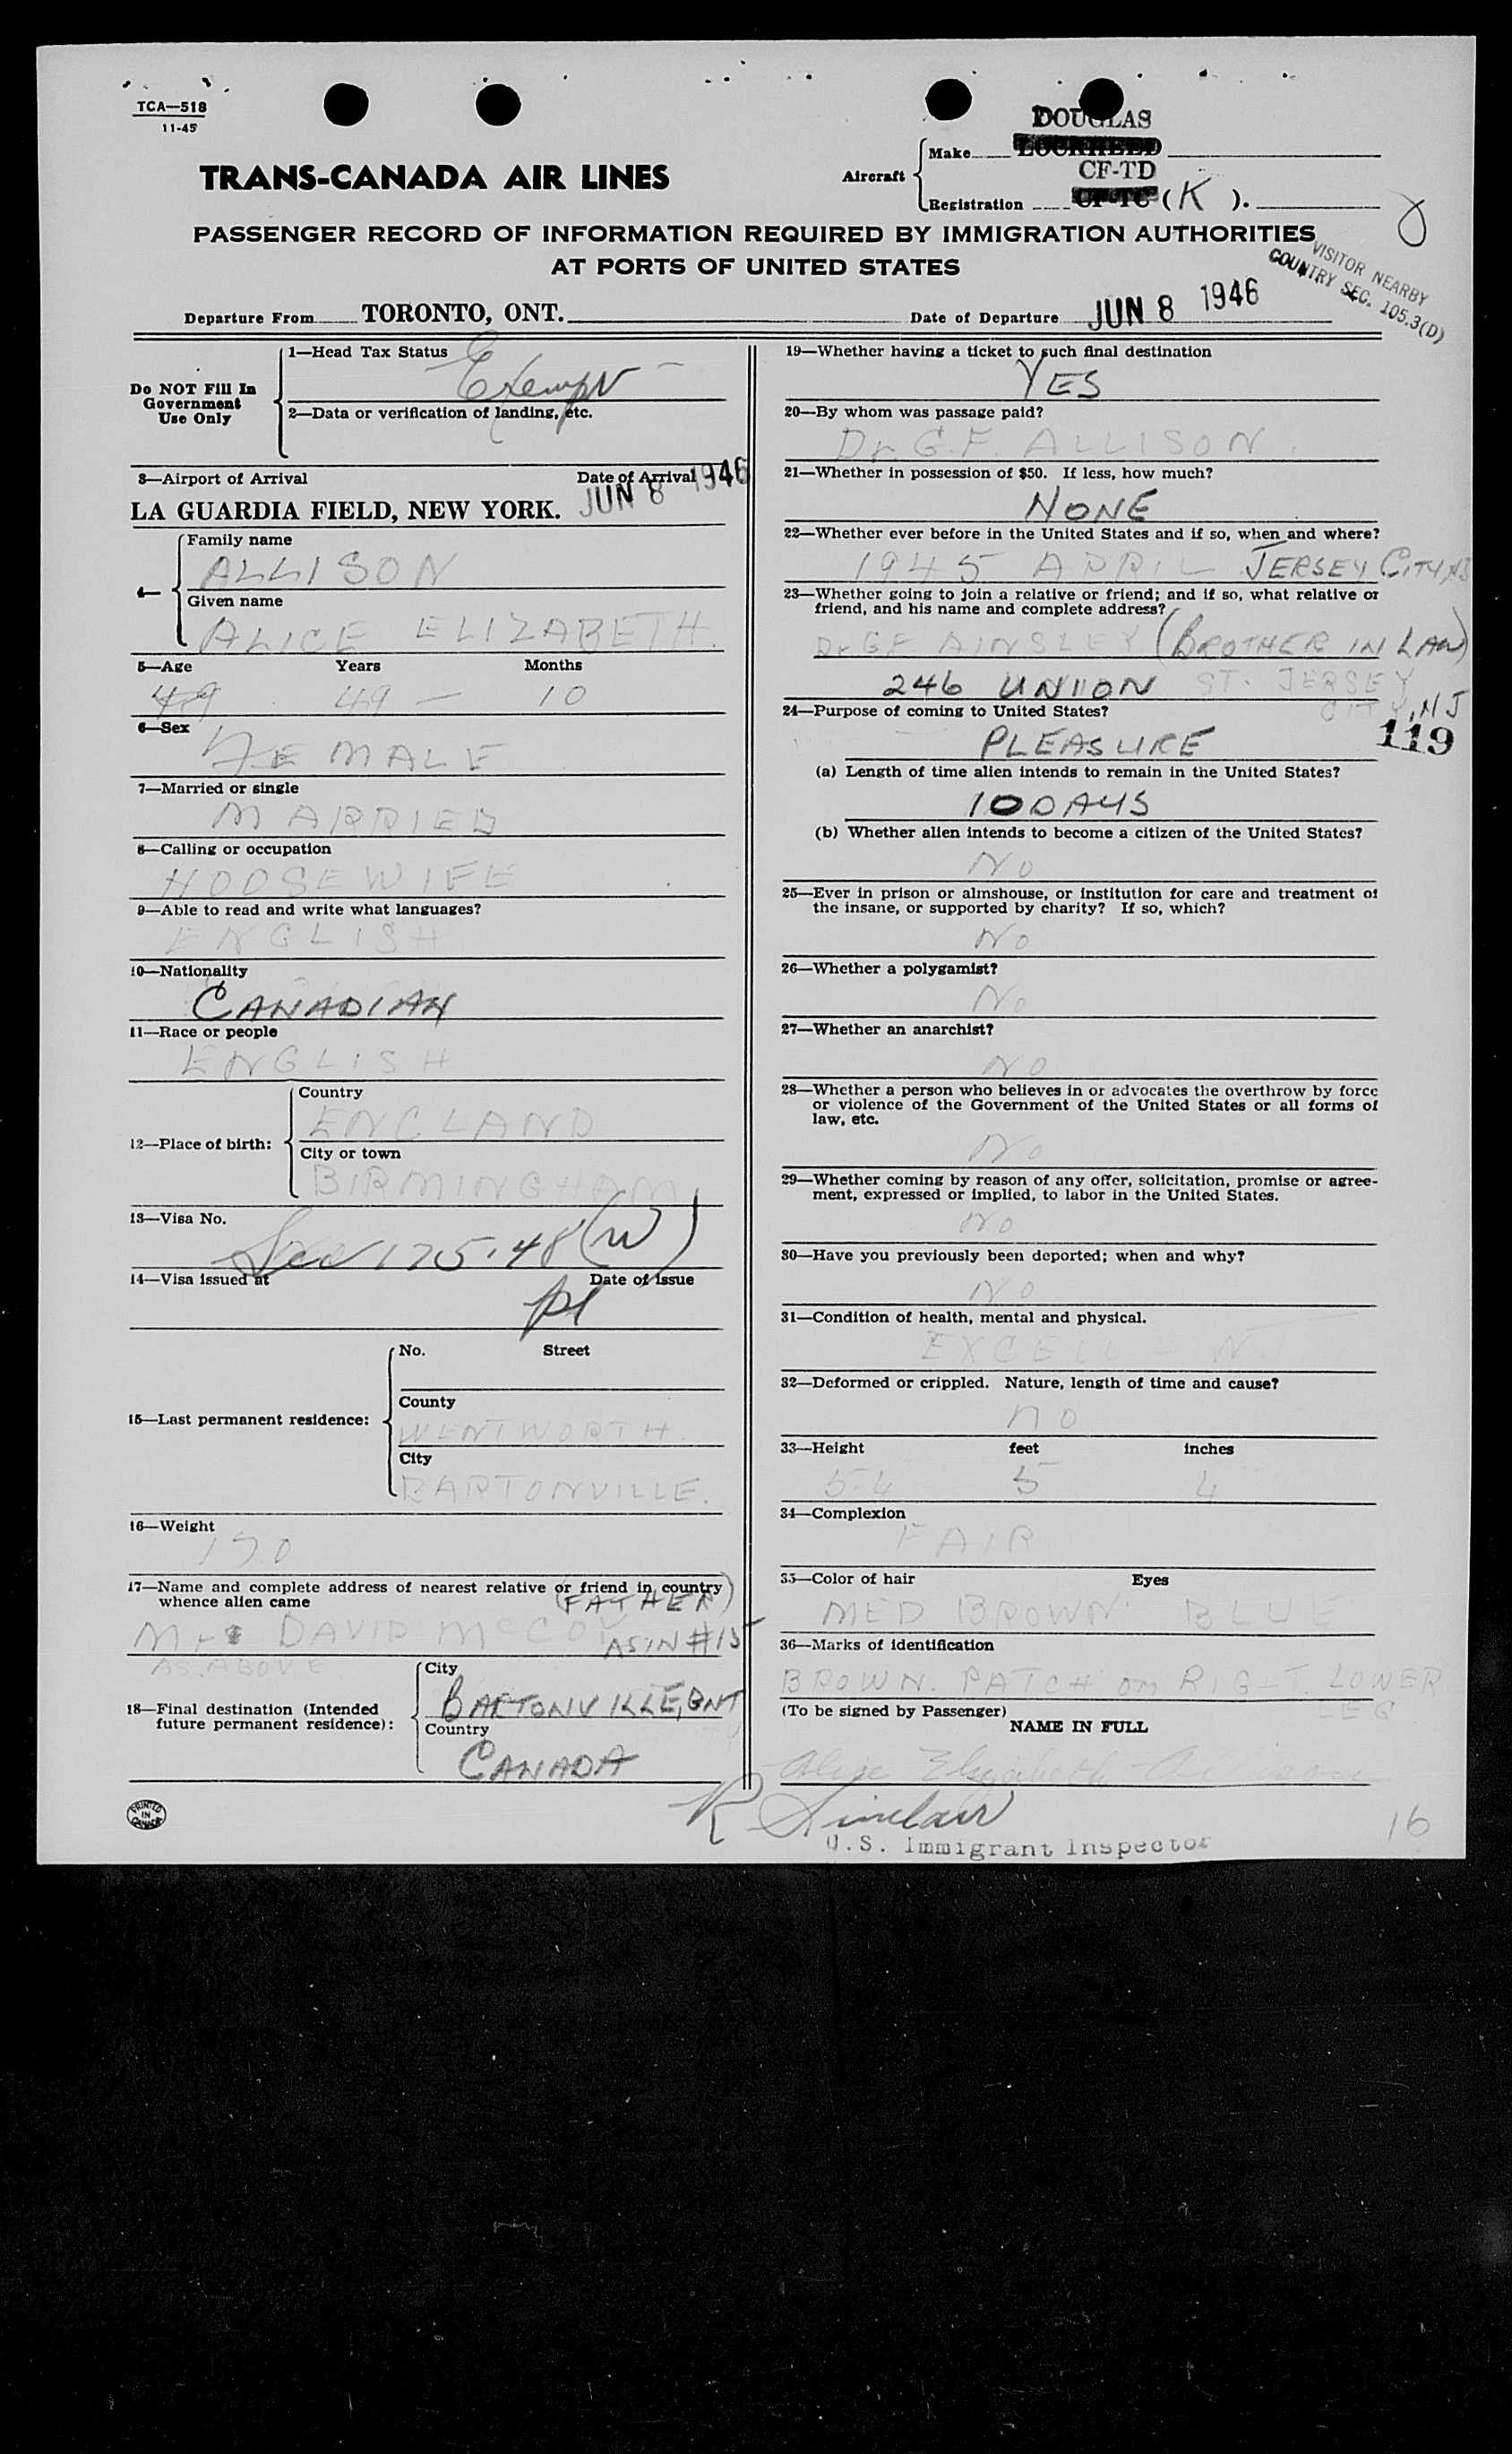 TCA—518
11-45
DOUGLAS
TRANS-CANADA AIR LINES
Aircraft
Make LOCKHEED
CF-TD
Registration CF-TC (K ).
PASSENGER RECORD OF INFORMATION REQUIRED BY IMMIGRATION AUTHORITIES
AT PORTS OF UNITED STATES
VISITOR NEARBY
COUNTRY SEC. 105.3(D)
Departure From TORONTO, ONT.
Date of Departure JUN 8 1946
Do NOT Fill In
Government
Use Only
1—Head Tax Status
Exempt
2—Data or verification of landing, etc.
3—Airport of Arrival
Date of Arrival
LA GUARDIA FIELD, NEW YORK.
JUN 8 1946
4—
Family name
ALLISON
Given name
ALICE ELIZABETH.
5—Age Years Months
49 49 — 10
6—Sex
FEMALE
7—Married or single
MARRIED
8—Calling or occupation
HOOSEWIFE
9—Able to read and write what languages?
ENGLISH
10—Nationality
CANADIAN
11—Race or people
ENGLISH
12—Place of birth:
Country
ENGLAND
City or town
BIRMINGHAM
13—Visa No.
Sec 175.48 (W)
14—Visa issued at
Date of issue
15—Last permanent residence:
No. Street
County
WENTWORTH.
City
BARTONVILLE.
16—Weight
170
17—Name and complete address of nearest relative or friend in country
whence alien came
(FATHER)
DAVID MCCOY
AS IN #15
AS ABOVE
18—Final destination (Intended
future permanent residence):
City
BARTONVILLE, ONT
Country
CANADA
PRINTED
IN
CANADA
19—Whether having a ticket to such final destination
YES
20—By whom was passage paid?
Dr. G.F. ALLISON.
21—Whether in possession of $50. If less, how much?
NONE
22—Whether ever before in the United States and if so, when and where?
1945 APRIL JERSEY CITY NJ
23—Whether going to join a relative or friend; and if so, what relative or
friend, and his name and complete address?
Dr G.F. AINSLEY (BROTHER IN LAW)
246 UNIION ST. JERSEY
CITY, NJ
24—Purpose of coming to United States?
PLEASURE
119
(a) Length of time alien intends to remain in the United States?
10 DAYS
(b) Whether alien intends to become a citizen of the United States?
NO
25—Ever in prison or almshouse, or institution for care and treatment of
the insane, or supported by charity? If so, which?
NO
26—Whether a polygamist?
NO
27—Whether an anarchist?
NO
28—Whether a person who believes in or advocates the overthrow by force
or violence of the Government of the United States or all forms of
law, etc.
NO
29—Whether coming by reason of any offer, solicitation, promise or agree-
ment, expressed or implied, to labor in the United States.
NO
30—Have you previously been deported; when and why?
NO
31—Condition of health, mental and physical.
32—Deformed or crippled. Nature, length of time and cause?
NO
33—Height feet inches
5.4 5 4
34—Complexion
FAIR
35—Color of hair Eyes
MED BROWN BLUE
36—Marks of identification
BROWN. PATCH on RIGHT. LOWER
LEG
(To be signed by Passenger)
NAME IN FULL
Alice Elizabeth
R Sinclair
U.S. Immigrant Inspector
16